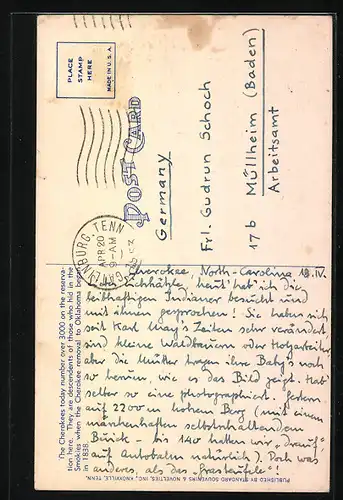 PLACE
STAMP
HERE
MADE IN U.S.A.
POST CARD
GATLINBURG, TENN
APR 20
9-AM
Germany
Frl. Gudrun Schoch
17b Müllheim (Baden)
Arbeitsamt
The Cherokees today number over 3000 on the reserva-
tion here. They are descendants of those who hid in the
Smokies when the Cherokee removal to Oklahoma began
in 1838.
Cherokee, North-Carolina 19.IV.
heut' hab' ich die
leibhaftigen Indianer besucht und
mit ihnen gesprochen! Sie haben sich
seit Karl May's Zeiten sehr verändert
sind kleine Waldbauern oder Holzarbeiter
aber die Mütter tragen ihre Baby's noch
so herum, wie es das Bild zeigt. Hab'
selber so eine photographiert. Gestern
auf 2200 m hohem Berg (mit einem
märchenhaften selbstschaltendem
Buick - bis 140 hatten wir „drauf"
auf Autobahn natürlich). Doch was
anders, als das
PUBLISHED STANDARD SOUVENIRS & NOVELTIES, INC., KNOXVILLE, TENN.